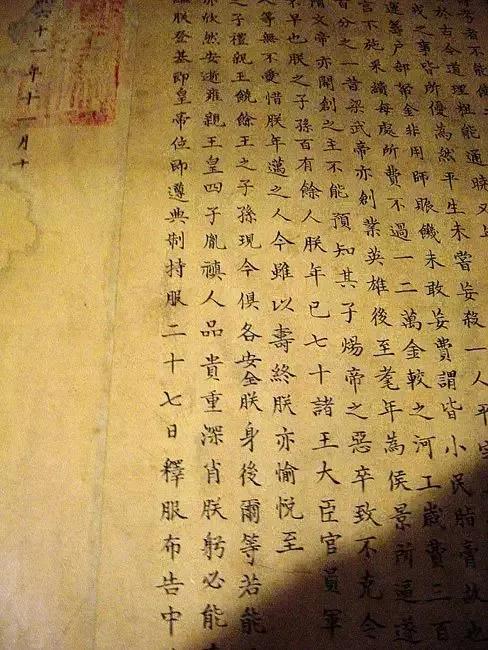 於古今道理粗能通曉又年
戎之事皆所優為然平生未嘗妄殺一人平定
運籌戶部帑金非用師賑饑未敢妄費謂皆小民脂膏故也
言不施采繢每處所費不過一二萬金較之河工歲費三百
百分之一昔梁武帝亦創業英雄後至耄年為侯景所逼遂
隋文帝亦開創之主不能預知其子煬帝之惡卒致不克令
不早也朕之子孫百有餘人朕年已七十諸王大臣官員軍
人等無不愛惜朕年邁之人今雖以壽終朕亦愉悅至
之子禮親王饒餘王之子孫現今俱各安全朕身後爾等若能
亦欣然安逝雍親王皇四子胤禛人品貴重深肖朕躬必能
繼朕登基即皇帝位即遵典制持服二十七日釋服布告中
十一年十一月十